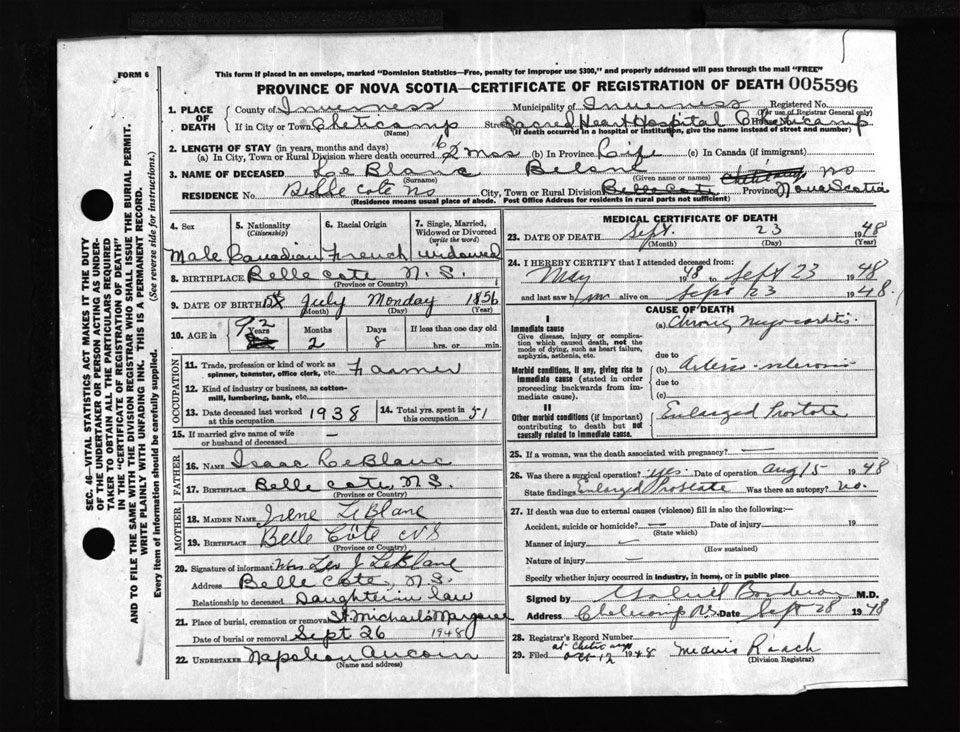 FORM 6
This form if placed in an envelope, marked "Dominion Statistics—Free, penalty for improper use $300," and properly addressed will pass through the mail "FREE"
PROVINCE OF NOVA SCOTIA—CERTIFICATE OF REGISTRATION OF DEATH 005596
1. PLACE OF DEATH County of Inverness Municipality of Inverness Registered No. (For use of Registrar General only)
If in City or Town Cheticamp (Name) Street Sacred Heart Hospital Cheticamp
(If death occurred in a hospital or institution, give the name instead of street and number)
2. LENGTH OF STAY (in years, months and days)
(a) In City, Town or Rural Division where death occurred 2 mos (b) In Province Life (c) In Canada (if immigrant)
3. NAME OF DECEASED LeBlanc (Surname) (Given name or names) NS
RESIDENCE No Belle Cote NS City, Town or Rural Division Belle Cote Province Nova Scotia
(Residence means usual place of abode. Post Office Address for residents in rural parts not sufficient)
4. Sex 5. Nationality (Citizenship) 6. Racial Origin 7. Single, Married, Widowed or Divorced (write the word)
Male Canadian French widowed
8. BIRTHPLACE Belle Cote N.S. (Province or Country)
9. DATE OF BIRTH July (Month) Monday (Day) 1856
10. AGE in 92 Years Months 2 Days 8 If less than one day old hrs. or min.
OCCUPATION
11. Trade, profession or kind of work as spinner, teamster, office clerk, etc. Farmer
12. Kind of industry or business, as cotton-mill, lumbering, bank, etc.
13. Date deceased last worked at this occupation 1938 14. Total yrs. spent in this occupation 51
15. If married give name of wife or husband of deceased —
FATHER
16. NAME Isaac LeBlanc
17. BIRTHPLACE Belle Cote, N.S. (Province or Country)
MOTHER
18. MAIDEN NAME Irene LeBlanc
19. BIRTHPLACE Belle Côte NS (Province or Country)
20. Signature of informant Mrs Leo J LeBlanc
Address Belle Cote, N.S.
Relationship to deceased Daughter in law
21. Place of burial, cremation or removal St. Michaels Margaree
Date of burial or removal Sept 26 1948
22. UNDERTAKER Napoleon Aucoin (Name and address)
MEDICAL CERTIFICATE OF DEATH
23. DATE OF DEATH Sept. (Month) 23 (Day) 1948 (Year)
24. I HEREBY CERTIFY that I attended deceased from:
May 48 to Sept 23 1948
and last saw him alive on Sept 23 1948.
CAUSE OF DEATH
I
Immediate cause
Give disease, injury or complication which caused death, not the mode of dying, such as heart failure, asphyxia, asthenia, etc.
(a) Chronic Myocarditis
due to
Morbid conditions, if any, giving rise to immediate cause (stated in order proceeding backwards from immediate cause).
(b)
due to
(c)
II
Other morbid conditions (if important) contributing to death but not causally related to immediate cause.
Enlarged Prostate
25. If a woman, was the death associated with pregnancy? —
26. Was there a surgical operation? yes. Date of operation Aug 15 1948
State findings Enlarged Prostate Was there an autopsy? no.
27. If death was due to external causes (violence) fill in also the following:—
Accident, suicide or homicide? — (State which) Date of injury 19
Manner of injury — (How sustained)
Nature of injury —
Specify whether injury occurred in industry, in home, or in public place
Signed by M.D.
Address Cheticamp NS. Date Sept 28 1948
28. Registrar's Record Number
29. Filed at Cheticamp Oct 12 1948 (Division Registrar)
SEC. 46—VITAL STATISTICS ACT MAKES IT THE DUTY OF THE UNDERTAKER OR PERSON ACTING AS UNDERTAKER TO OBTAIN ALL THE PARTICULARS REQUIRED IN THE "CERTIFICATE OF REGISTRATION OF DEATH" AND TO FILE THE SAME WITH THE DIVISION REGISTRAR WHO SHALL ISSUE THE BURIAL PERMIT.
WRITE PLAINLY WITH UNFADING INK. THIS IS A PERMANENT RECORD.
Every item of information should be carefully supplied. (See reverse side for instructions.)